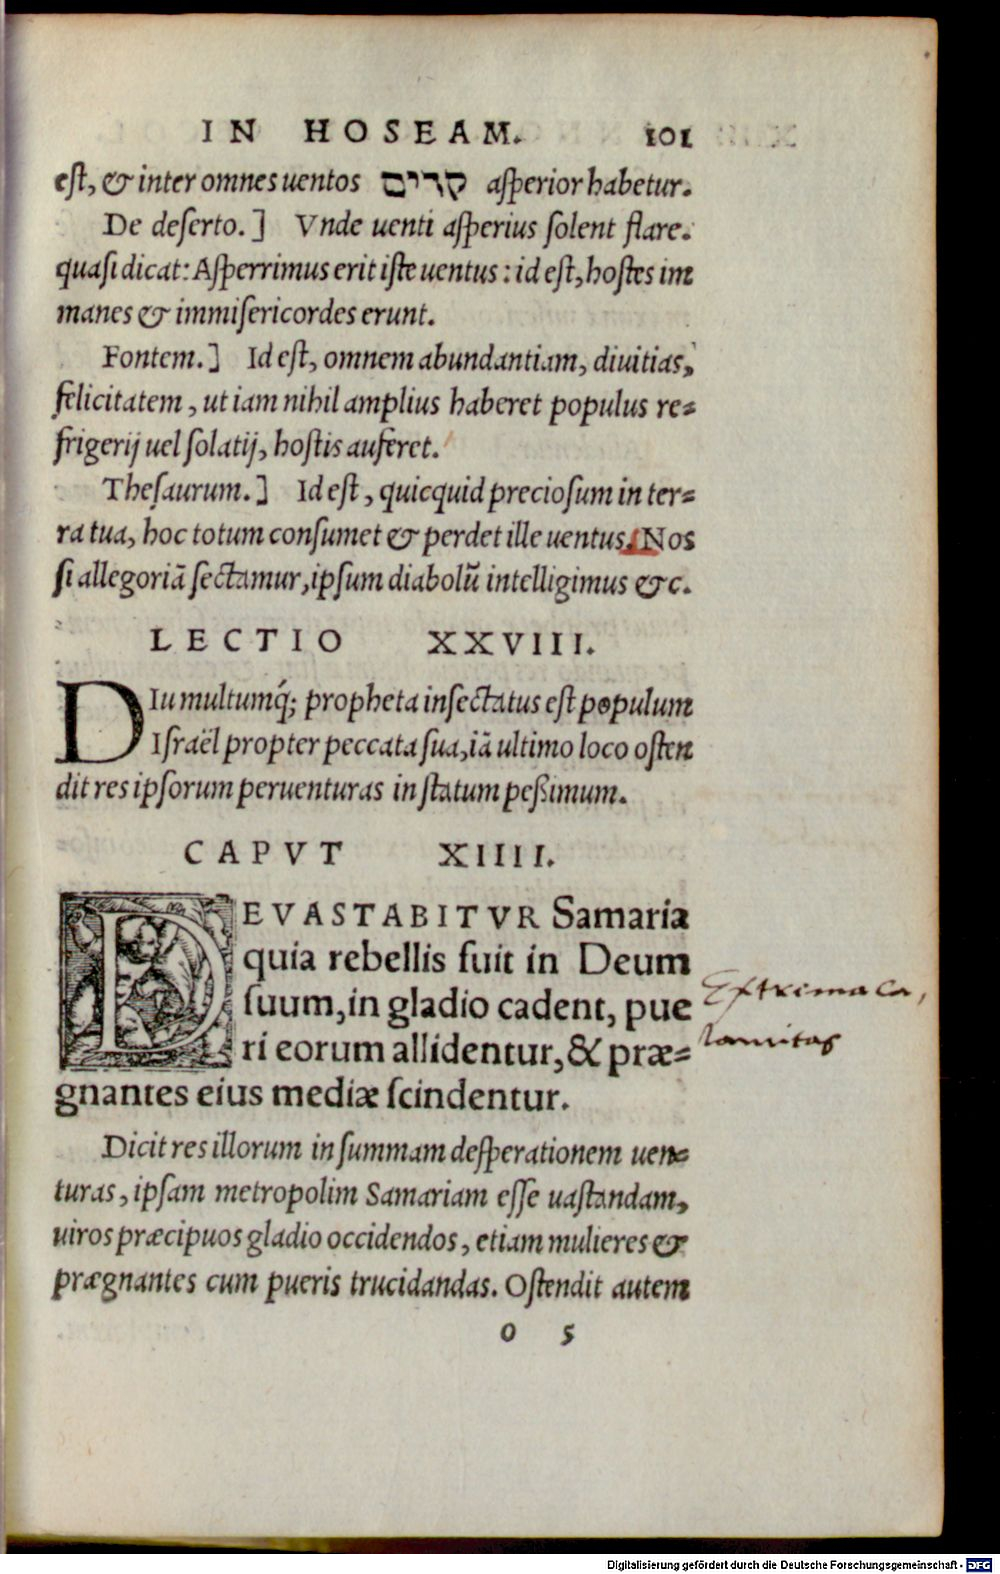 IN HOSEAM. 101
est, & inter omnes uentos קרים asperior habetur.
De deserto.] Vnde uenti asperius solent flare.
quasi dicat: Asperrimus erit iste uentus: id est, hostes im
manes & immisericordes erunt.
Fontem.] Id est, omnem abundantiam, diuitias,
felicitatem, ut iam nihil amplius haberet populus re-
frigerij uel solatij, hostis auferet.
Thesaurum.] Id est, quicquid preciosum in ter-
ra tua, hoc totum consumet & perdet ille uentus. Nos
si allegoriā sectamur, ipsum diabolū intelligimus &c.
LECTIO XXVIII.
DIu multumq́; propheta insectatus est populum
Israël propter peccata sua, iā ultimo loco osten
dit res ipsorum peruenturas in statum peßimum.
CAPVT XIIII.
DEVASTABITVR Samaria
quia rebellis fuit in Deum
suum, in gladio cadent, pue
ri eorum allidentur, & præ-
gnantes eius mediæ scindentur.
Extrema ca,
lamitas
Dicit res illorum in summam desperationem uen-
turas, ipsam metropolim Samariam esse uastandam,
uiros præcipuos gladio occidendos, etiam mulieres &
prægnantes cum pueris trucidandas. Ostendit autem
o 5
Digitalisierung gefördert durch die Deutsche Forschungsgemeinschaft - DFG